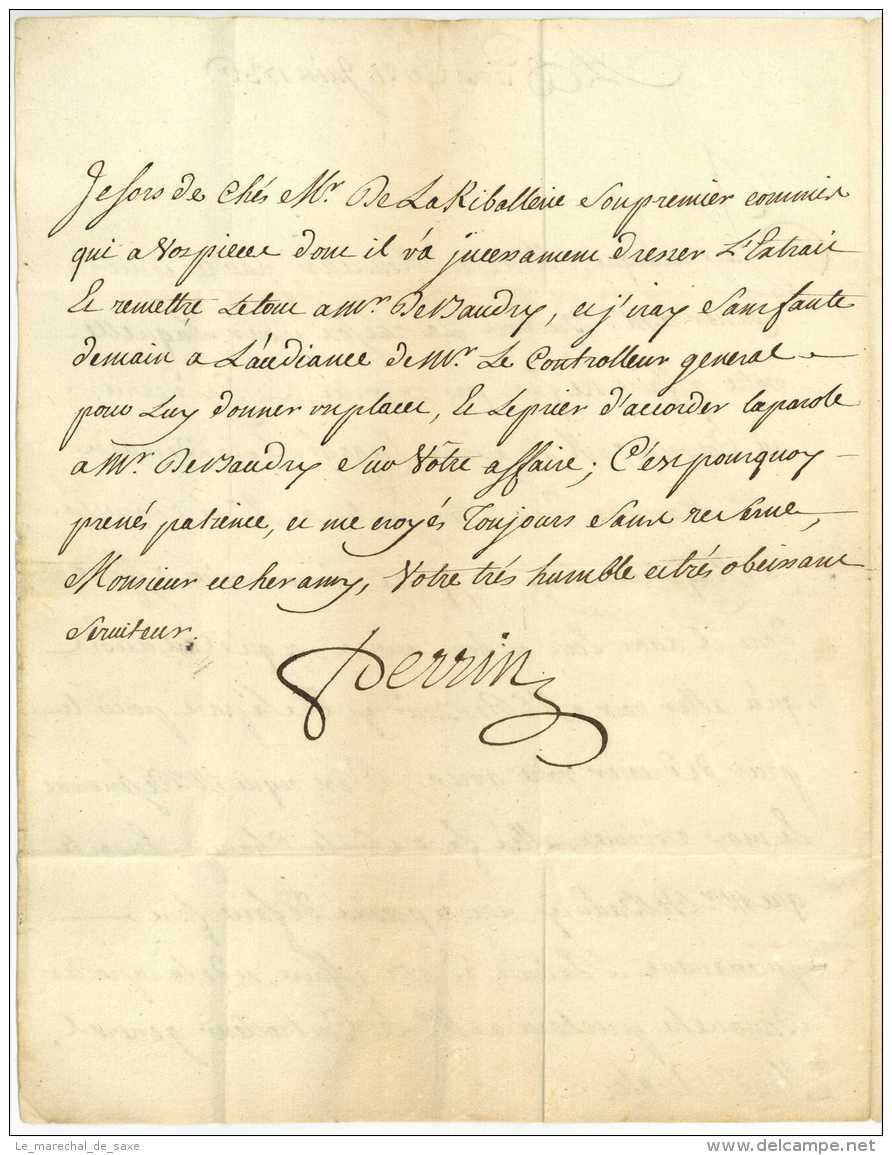 Je sors de chés Mr. De La Riballerie son premier commis
qui a vos pieces dont il va jncessament dresser L'Extrait
Et remettre Le tout a Mr. De Baudry, et j'iray sans faute
demain a L'audiance de Mr. Le Controlleur general
pour Luy donner un placet, Et Le prier d'accorder la parole
a Mr. De Baudry sur Vôtre affaire; C'est pourquoy
prenés patience, et me croyés Toujours sans reserve,
Monsieur et cher amy, Votre trés humble et trés obeissant
Serviteur.
Perrin
Le_marechal_de_saxe
www.delcampe.net